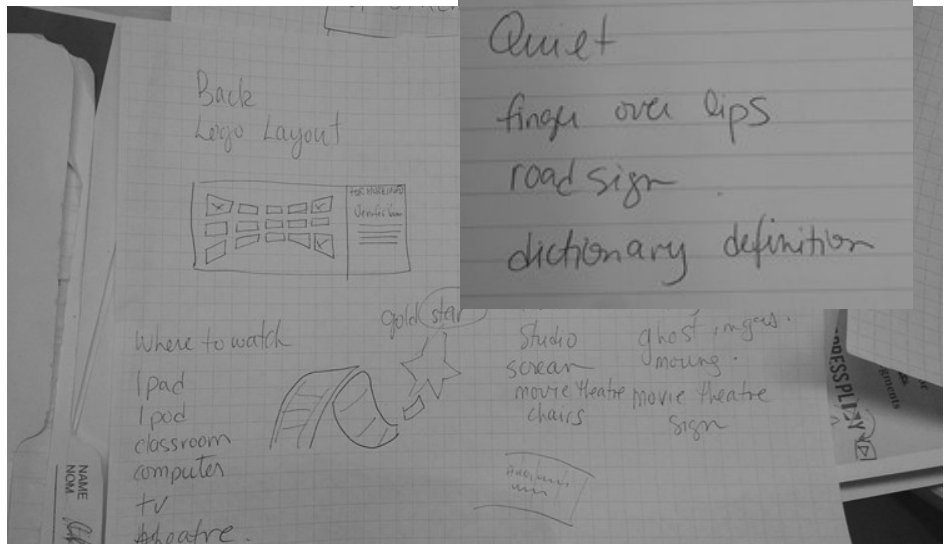 Back
Logo Layout
Quiet
finger over lips
road sign
dictionary definition
Where to watch
Ipad
Ipod
classroom
computer
tv
theatre.
gold star
Studio
screan
movie theatre
chairs
ghost
moving.
movie theatre
sign
NAME
NOM